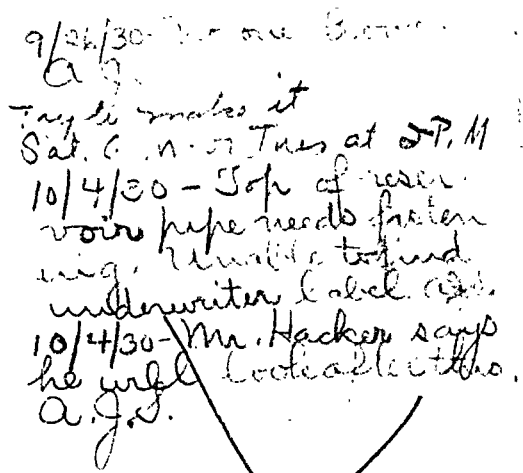 9/26/30- No one home.
A. J.
makes it
Sat. A.M. or Tues at 2 P.M
10/4/30 - Top of reser-
voir pipe needs fasten
ing. Unable to find
underwriter label A.J.S.
10/4/30 - Mr. Hacker says
he will look after this.
A.J.S.